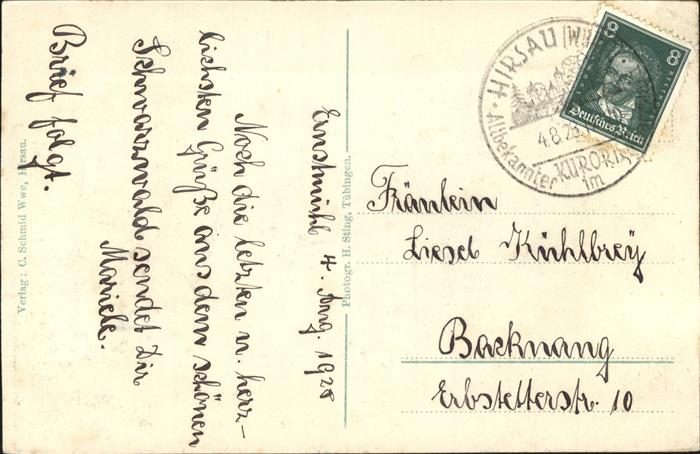 Ernstmühl 4. Aug. 1928
Noch die letzten u. herz-
lichsten Grüße aus dem schönen
Schwarzwald sendet Dir
Mariele.
Brief folgt.
Verlag: C. Schmid Wwe, Hirsau.
Photogr. H. Sting, Tübingen.
HIRSAU
Altbekannter KURORT
im
4.8.28
8 8
Deutsches Reich
Fräulein
Liesel Kühlbrey
Backnang
Erbstetterstr. 10